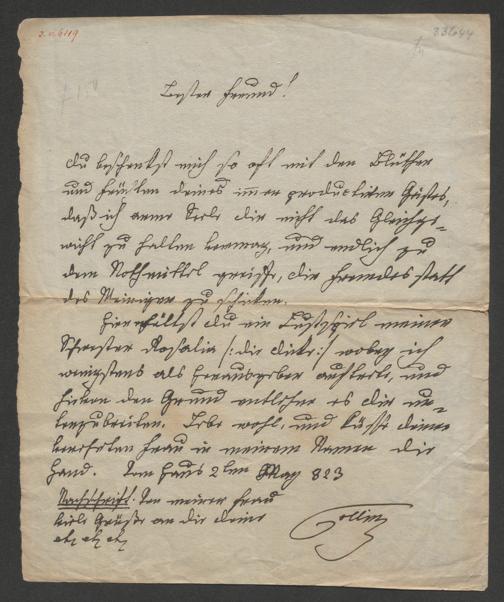 33644
Bester Freund!
Du beschenkst mich so oft mit den Blüthen
und Früchten deines immer productiven Geistes,
daß ich arme Seele dir nicht das Gleichge-
wicht zu halten vermag, und endlich zu
dem Nothmittel greiffe, dir Fremdes statt
des Meinigen zu schicken.
Hier erhältst du ein Lustspiel meiner
Schwester Rosalia /: die dicke :/ wobey ich
wenigstens als Herausgeber auftrete, und
hierin den Grund es dir
Lebe wohl, und küsse deiner
verehrten Frau in meinem Namen die
Hand. Vom Haus 2ten May 823
Nachschrift. Von meiner Frau
viele Grüße an die deine
etc etc etc
Collin